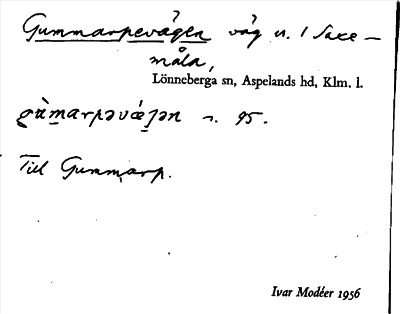 Gummarpevägen väg u. / Saxe-
måla,
Lönneberga sn, Aspelands hd, Klm. l.
95.
Till Gummarp.
Ivar Modéer 1956